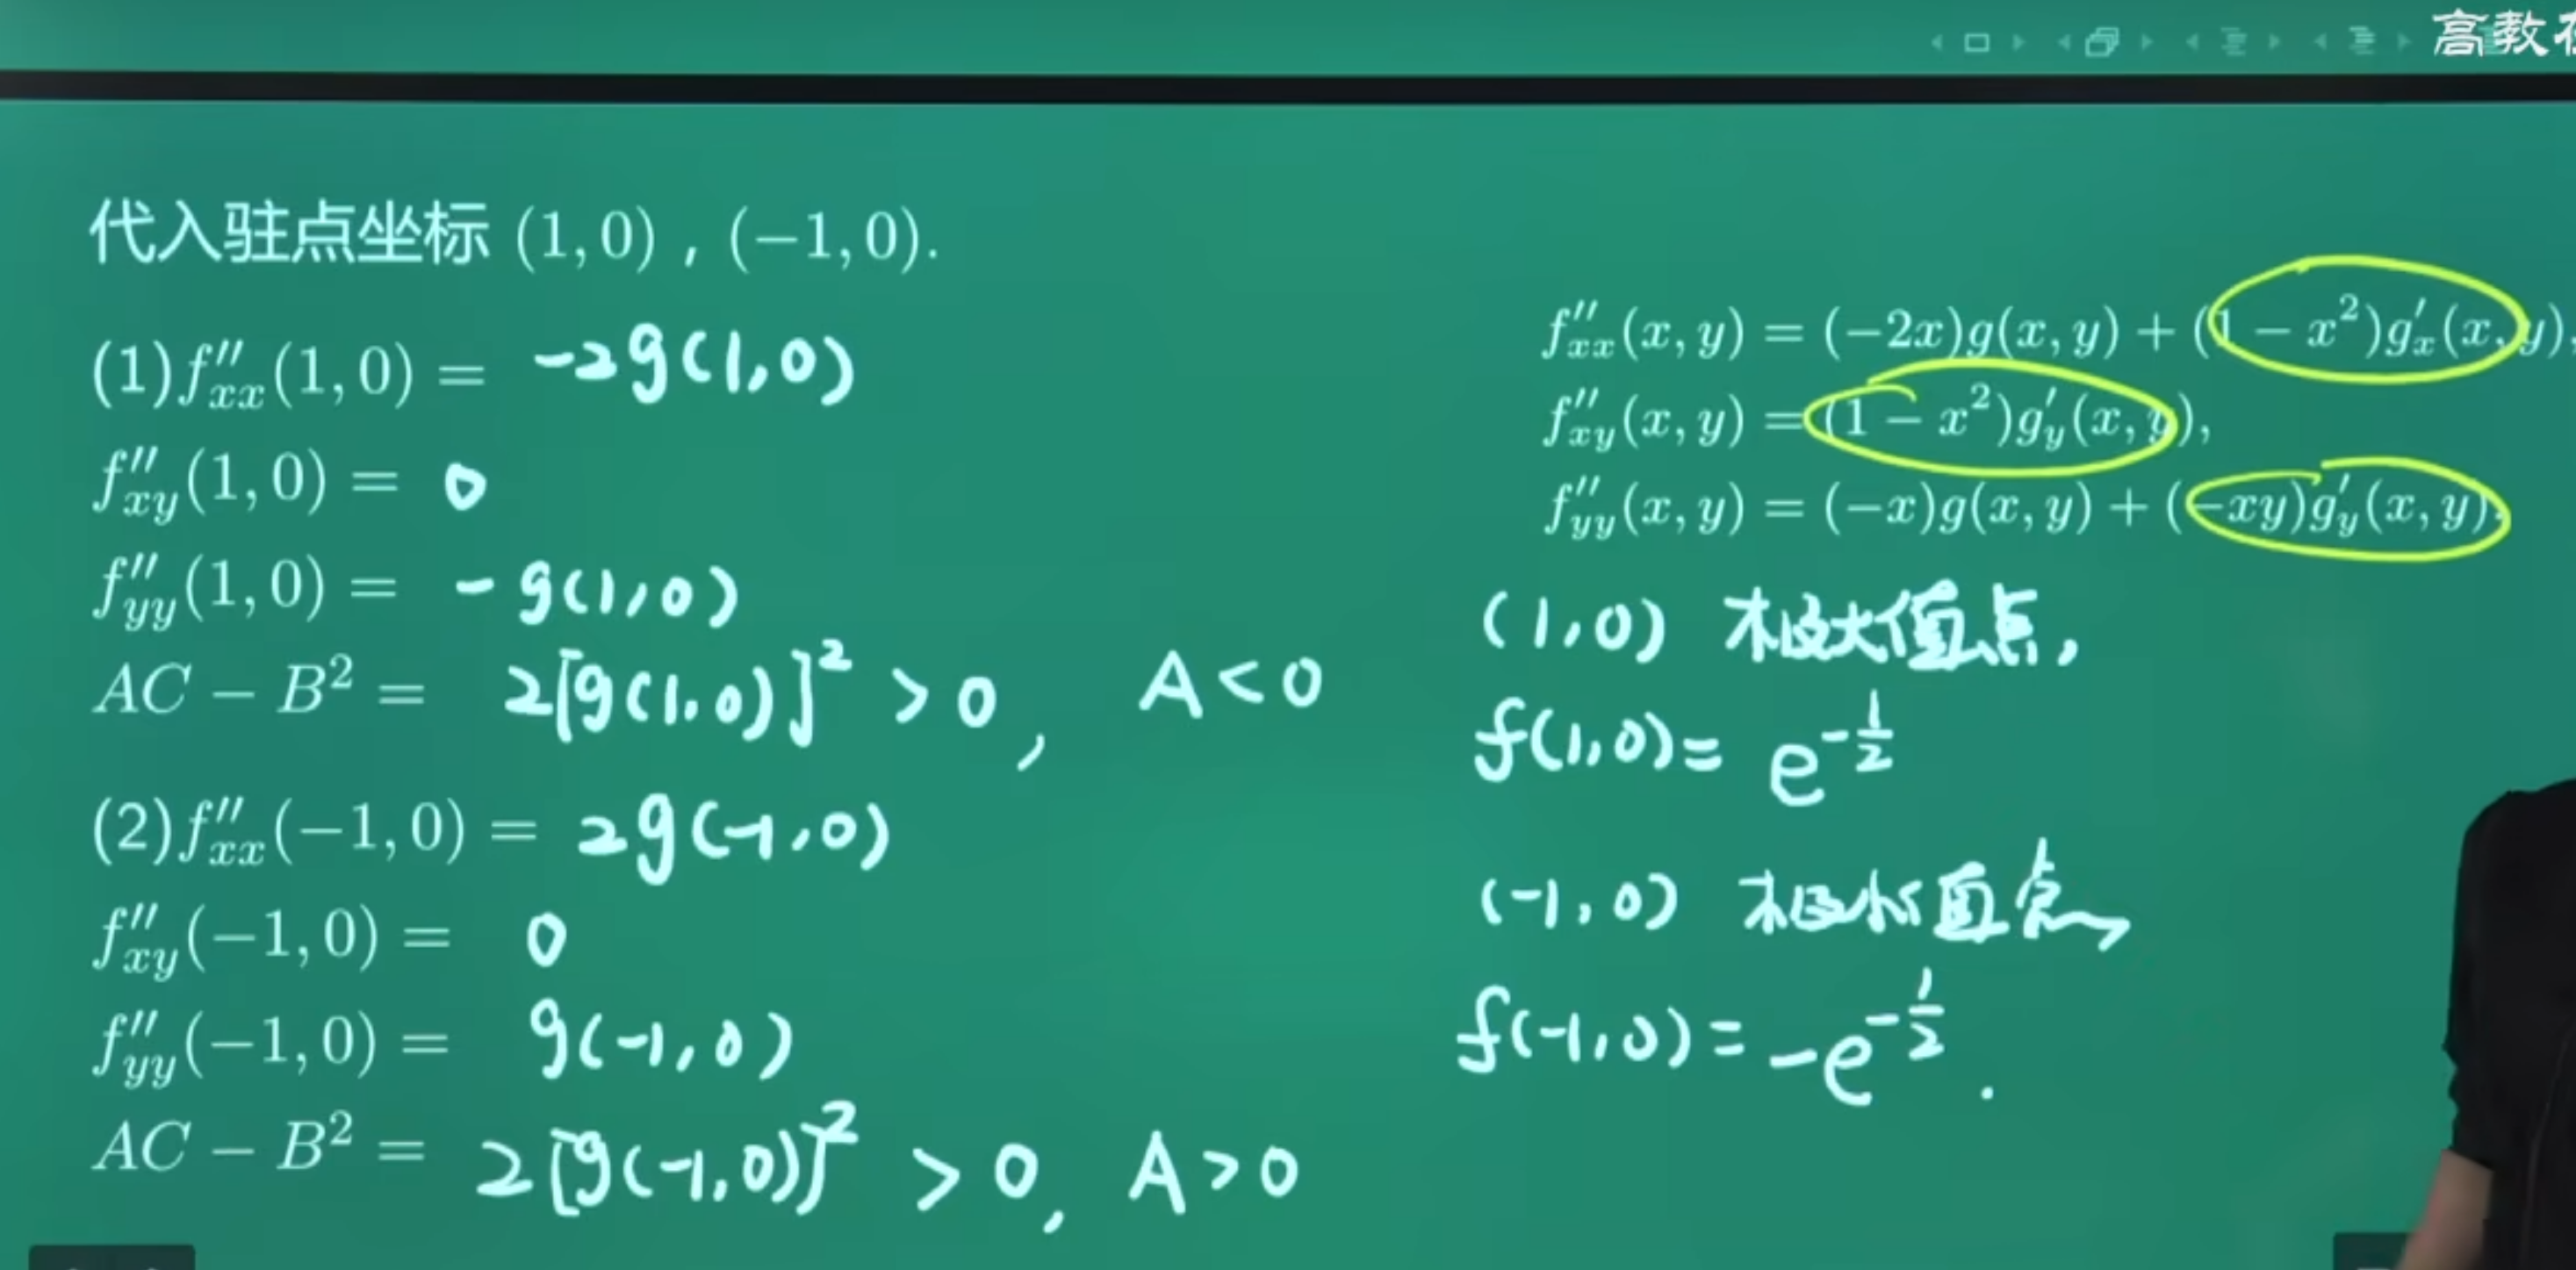 高教
代入驻点坐标 (1, 0) , (−1, 0).
(1)f''xx(1, 0) = -2g(1,0)
f''xy(1, 0) = 0
f''yy(1, 0) = -g(1,0)
AC − B² = 2[g(1,0)]² > 0, A < 0
(2)f''xx(−1, 0) = 2g(-1,0)
f''xy(−1, 0) = 0
f''yy(−1, 0) = g(-1,0)
AC − B² = 2[g(-1,0)]² > 0, A > 0
f''xx(x, y) = (−2x)g(x, y) + (1 − x²)g'x(x, y),
f''xy(x, y) = (1 − x²)g'y(x, y),
f''yy(x, y) = (−x)g(x, y) + (−xy)g'y(x, y).
(1,0) 极大值点,
f(1,0) = e^{-1/2}
(-1,0) 极小值点,
f(-1,0) = -e^{-1/2}.